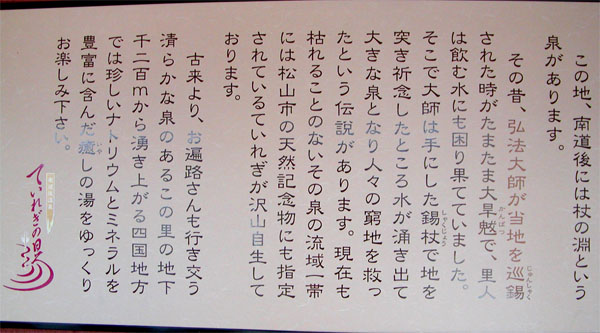 この地、南道後には杖の淵という
泉があります。
その昔、弘法大師が当地を巡錫
された時がたまたま大旱魃で、里人
は飲む水にも困り果てていました。
そこで大師は手にした錫杖で地を
突き祈念したところ水が涌き出て
大きな泉となり人々の窮地を救っ
たという伝説があります。現在も
枯れることのないその泉の流域一帯
には松山市の天然記念物にも指定
されているていれぎが沢山自生して
おります。
古来より、お遍路さんも行き交う
清らかな泉のあるこの里の地下
千二百mから湧き上がる四国地方
では珍しいナトリウムとミネラルを
豊富に含んだ癒しの湯をゆっくり
お楽しみ下さい。
ていれぎの湯